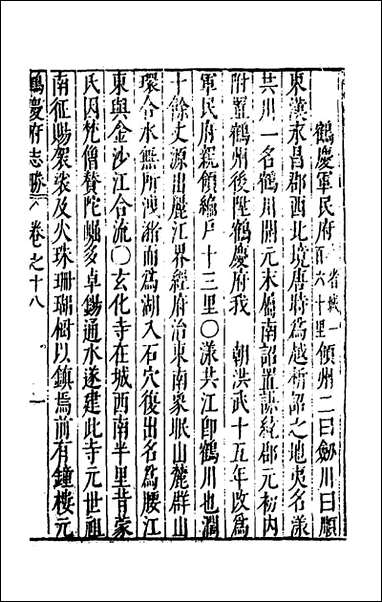 鶴慶軍民府省城一百六十里領州二曰劍川曰順
東漢永昌郡西北境唐時為越析詔之地夷名漾
共川一名鶴川開元末屬南詔置謀統郡元初內
附置鶴州後陞鶴慶府我　朝洪武十五年改為
軍民府親領編戶十三里〇漾共江即鶴川也濶
十餘丈源出麗江界經府治東南象眠山麓群山
環合水無所洩瀦而為湖入石穴復出名為腰江
東與金沙江合流〇玄化寺在城西南半里昔蒙
氏因梵僧贊陀𡁠多卓錫通水遂建此寺元世祖
南征賜袈裟及火珠珊瑚樹以鎮焉前有鐘樓元
鶴慶府志勝　卷之十八　一